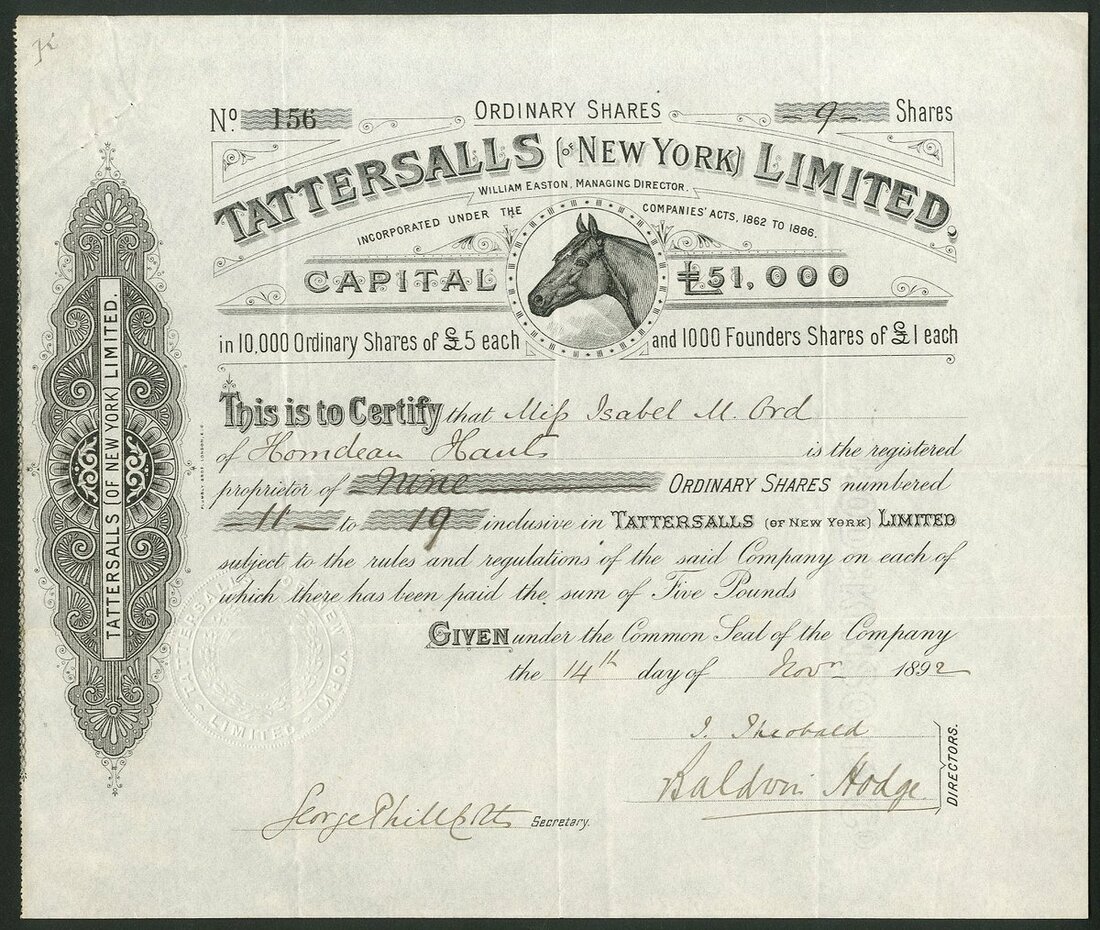 No 156 ORDINARY SHARES -9- Shares
TATTERSALLS (OF NEW YORK) LIMITED.
WILLIAM EASTON, MANAGING DIRECTOR.
INCORPORATED UNDER THE COMPANIES' ACTS, 1862 TO 1886.
CAPITAL £51,000
in 10,000 Ordinary Shares of £5 each and 1000 Founders Shares of £1 each
This is to Certify that Miss Isabel M. Ord
of Horndean Hants is the registered
proprietor of Nine ORDINARY SHARES numbered
-11- to 19 inclusive in TATTERSALLS (OF NEW YORK) LIMITED
subject to the rules and regulations of the said Company on each of
which there has been paid the sum of Five Pounds
GIVEN under the Common Seal of the Company
the 14th day of Novr 1892
J. Theobald
Baldwin Hodge
DIRECTORS.
George Phillpotts Secretary.
TATTERSALLS (OF NEW YORK) LIMITED.
TATTERSALLS (OF NEW YORK) LIMITED